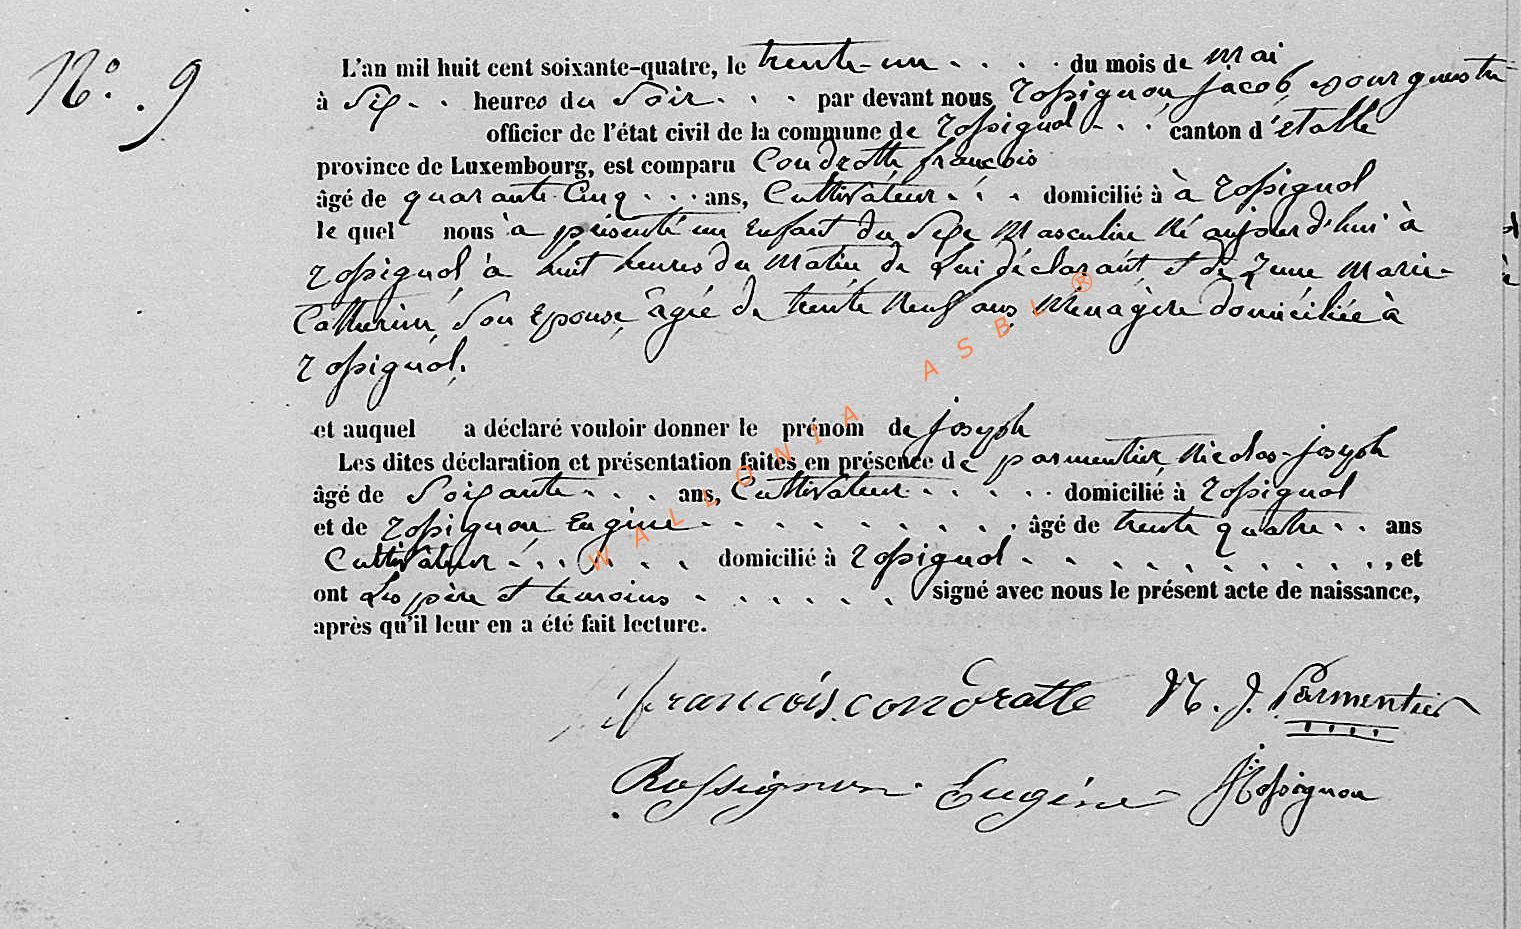 N° . 9
L'an mil huit cent soixante-quatre, le trente-un . . . . du mois de mai
à Six . . heures du Soir . . . par devant nous Rossignon, jacob, bourguestre
officier de l'état civil de la commune de Rossignol . . . canton d'étalle
province de Luxembourg, est comparu Condrotte, francois
âgé de quarante Cinq . . . ans, Cultivateur . . . domicilié à à Rossignol
le quel nous à présenté un Enfant du Sexe Masculin Né aujourd'hui à
Rossignol à huit heures du Matin de Lui déclarant et de Marie-
Catherine, Son Epouse, âgée de trente Neuf ans, Ménagère domiciliée à
Rossignol.
et auquel a déclaré vouloir donner le prénom de joseph
Les dites déclaration et présentation faites en présence de parmentier, Nicolas-joseph
âgé de Soixante . . . ans, Cultivateur . . . . . domicilié à Rossignol
et de Rossignon, Eugène . . . . . . . . . . âgé de trente quatre . . ans
Cultivateur . . . . . . . domicilié à Rossignol . . . . . . . . . . . . , et
ont Les père et temoins . . . . . . . signé avec nous le présent acte de naissance,
après qu'il leur en a été fait lecture.
francois condratte N. J. Parmentier
Rossignon Eugéne J Rossignon
WALLONIA ASBL ®